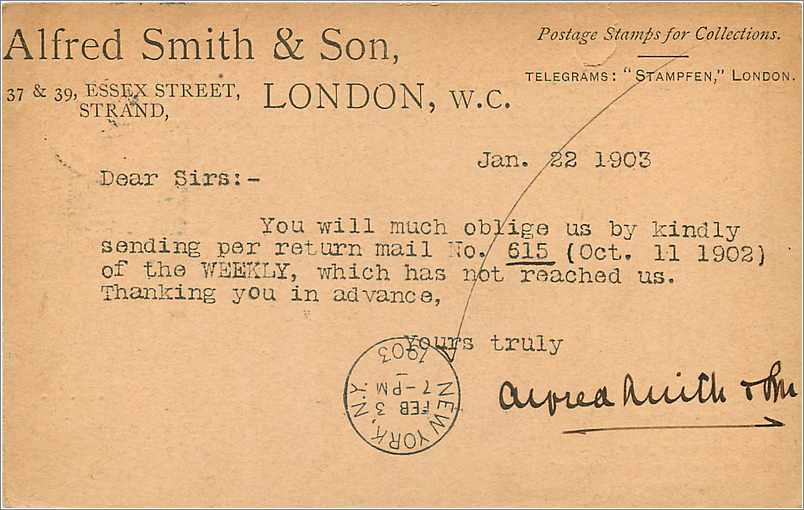 Alfred Smith & Son,
37 & 39, ESSEX STREET,
STRAND,
LONDON, W.C.
Postage Stamps for Collections.
TELEGRAMS: "STAMPFEN," LONDON.
Jan. 22 1903
Dear Sirs:-
You will much oblige us by kindly
sending per return mail No. 615 (Oct. 11 1902)
of the WEEKLY, which has not reached us.
Thanking you in advance,
Yours truly
Alfred Smith & Son
NEW YORK, N.Y.
FEB 3
7-PM
1903